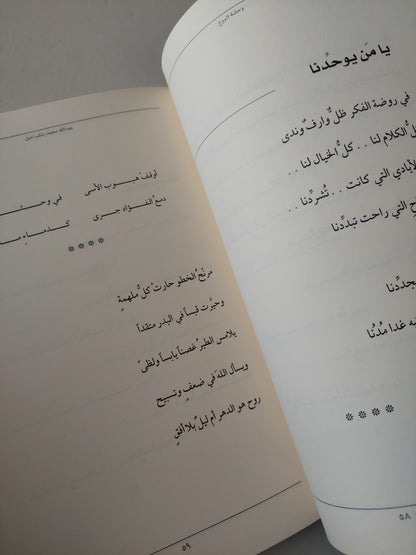 وحشة الروح
يا مَن يوحِّدنا
في روضة الفكر ظلٌّ وارفٌ وندى
الكلام لنا .. كلُّ الخيال لنا ..
الأيادي التي كانت .. تُشرِّدنا
التي راحت تبدِّدنا
غدا مُدُنا
* * * *
٥٨
عبدالله محمد باشراحيل
أوقف هبوب الأسى
في
دمعُ الفؤاد جرى
كدماءِ
* * * *
مرنّحُ الخطو حارتْ كلُّ ملهمةٍ
وحيَّرت قبساً في البدر متقداً
يلامس الطيرُ غصناً يابساً ولظىً
ويسأل اللهَ في ضعفٍ وتسبيح
روح هو الدهر أم ليلٌ بلا أفقٍ
٥٩